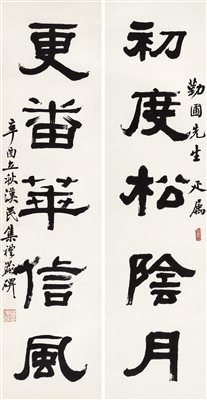 初度松陰月
勤圃先生疋屬
更番華信風
辛酉立秋漢民集禮器碑